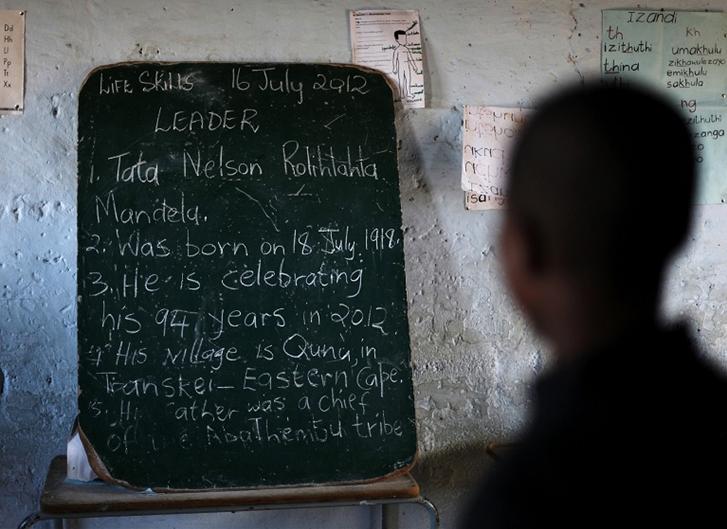 LIFE SKILLS 16 July 2012
LEADER
1. Tata Nelson Rolihlahla
Mandela.
2. Was born on 18 July 1918.
3. He is celebrating
his 94 years in 2012.
4 His village is Qunu, in
Transkei - Eastern Cape.
5. His father was a chief
of the AbaThembu tribe
Dd
Hh
Ll
Pp
Tt
Xx
Izandi
th
izithuthi
thina
kh
umakhulu
zikhawulezayo
emikhulu
sakhula
ng